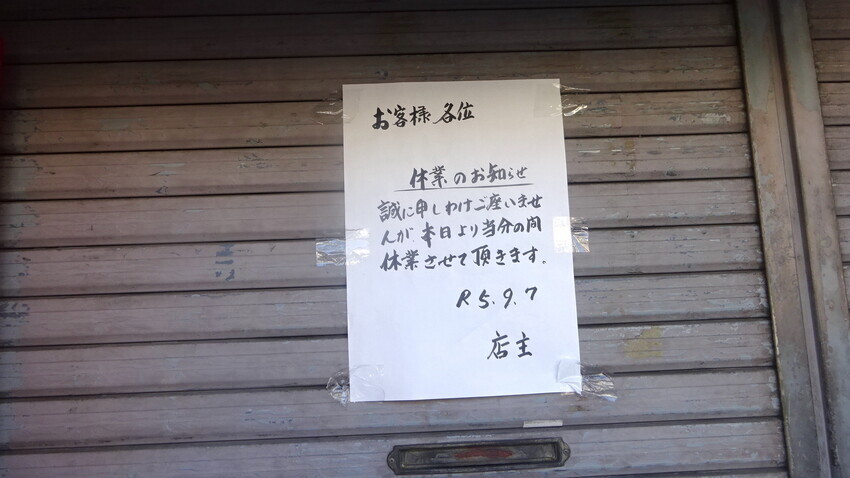 お客様各位
休業のお知らせ
誠に申しわけご座いませ
んが、本日より当分の間
休業させて頂きます.
R5.9.7
店主